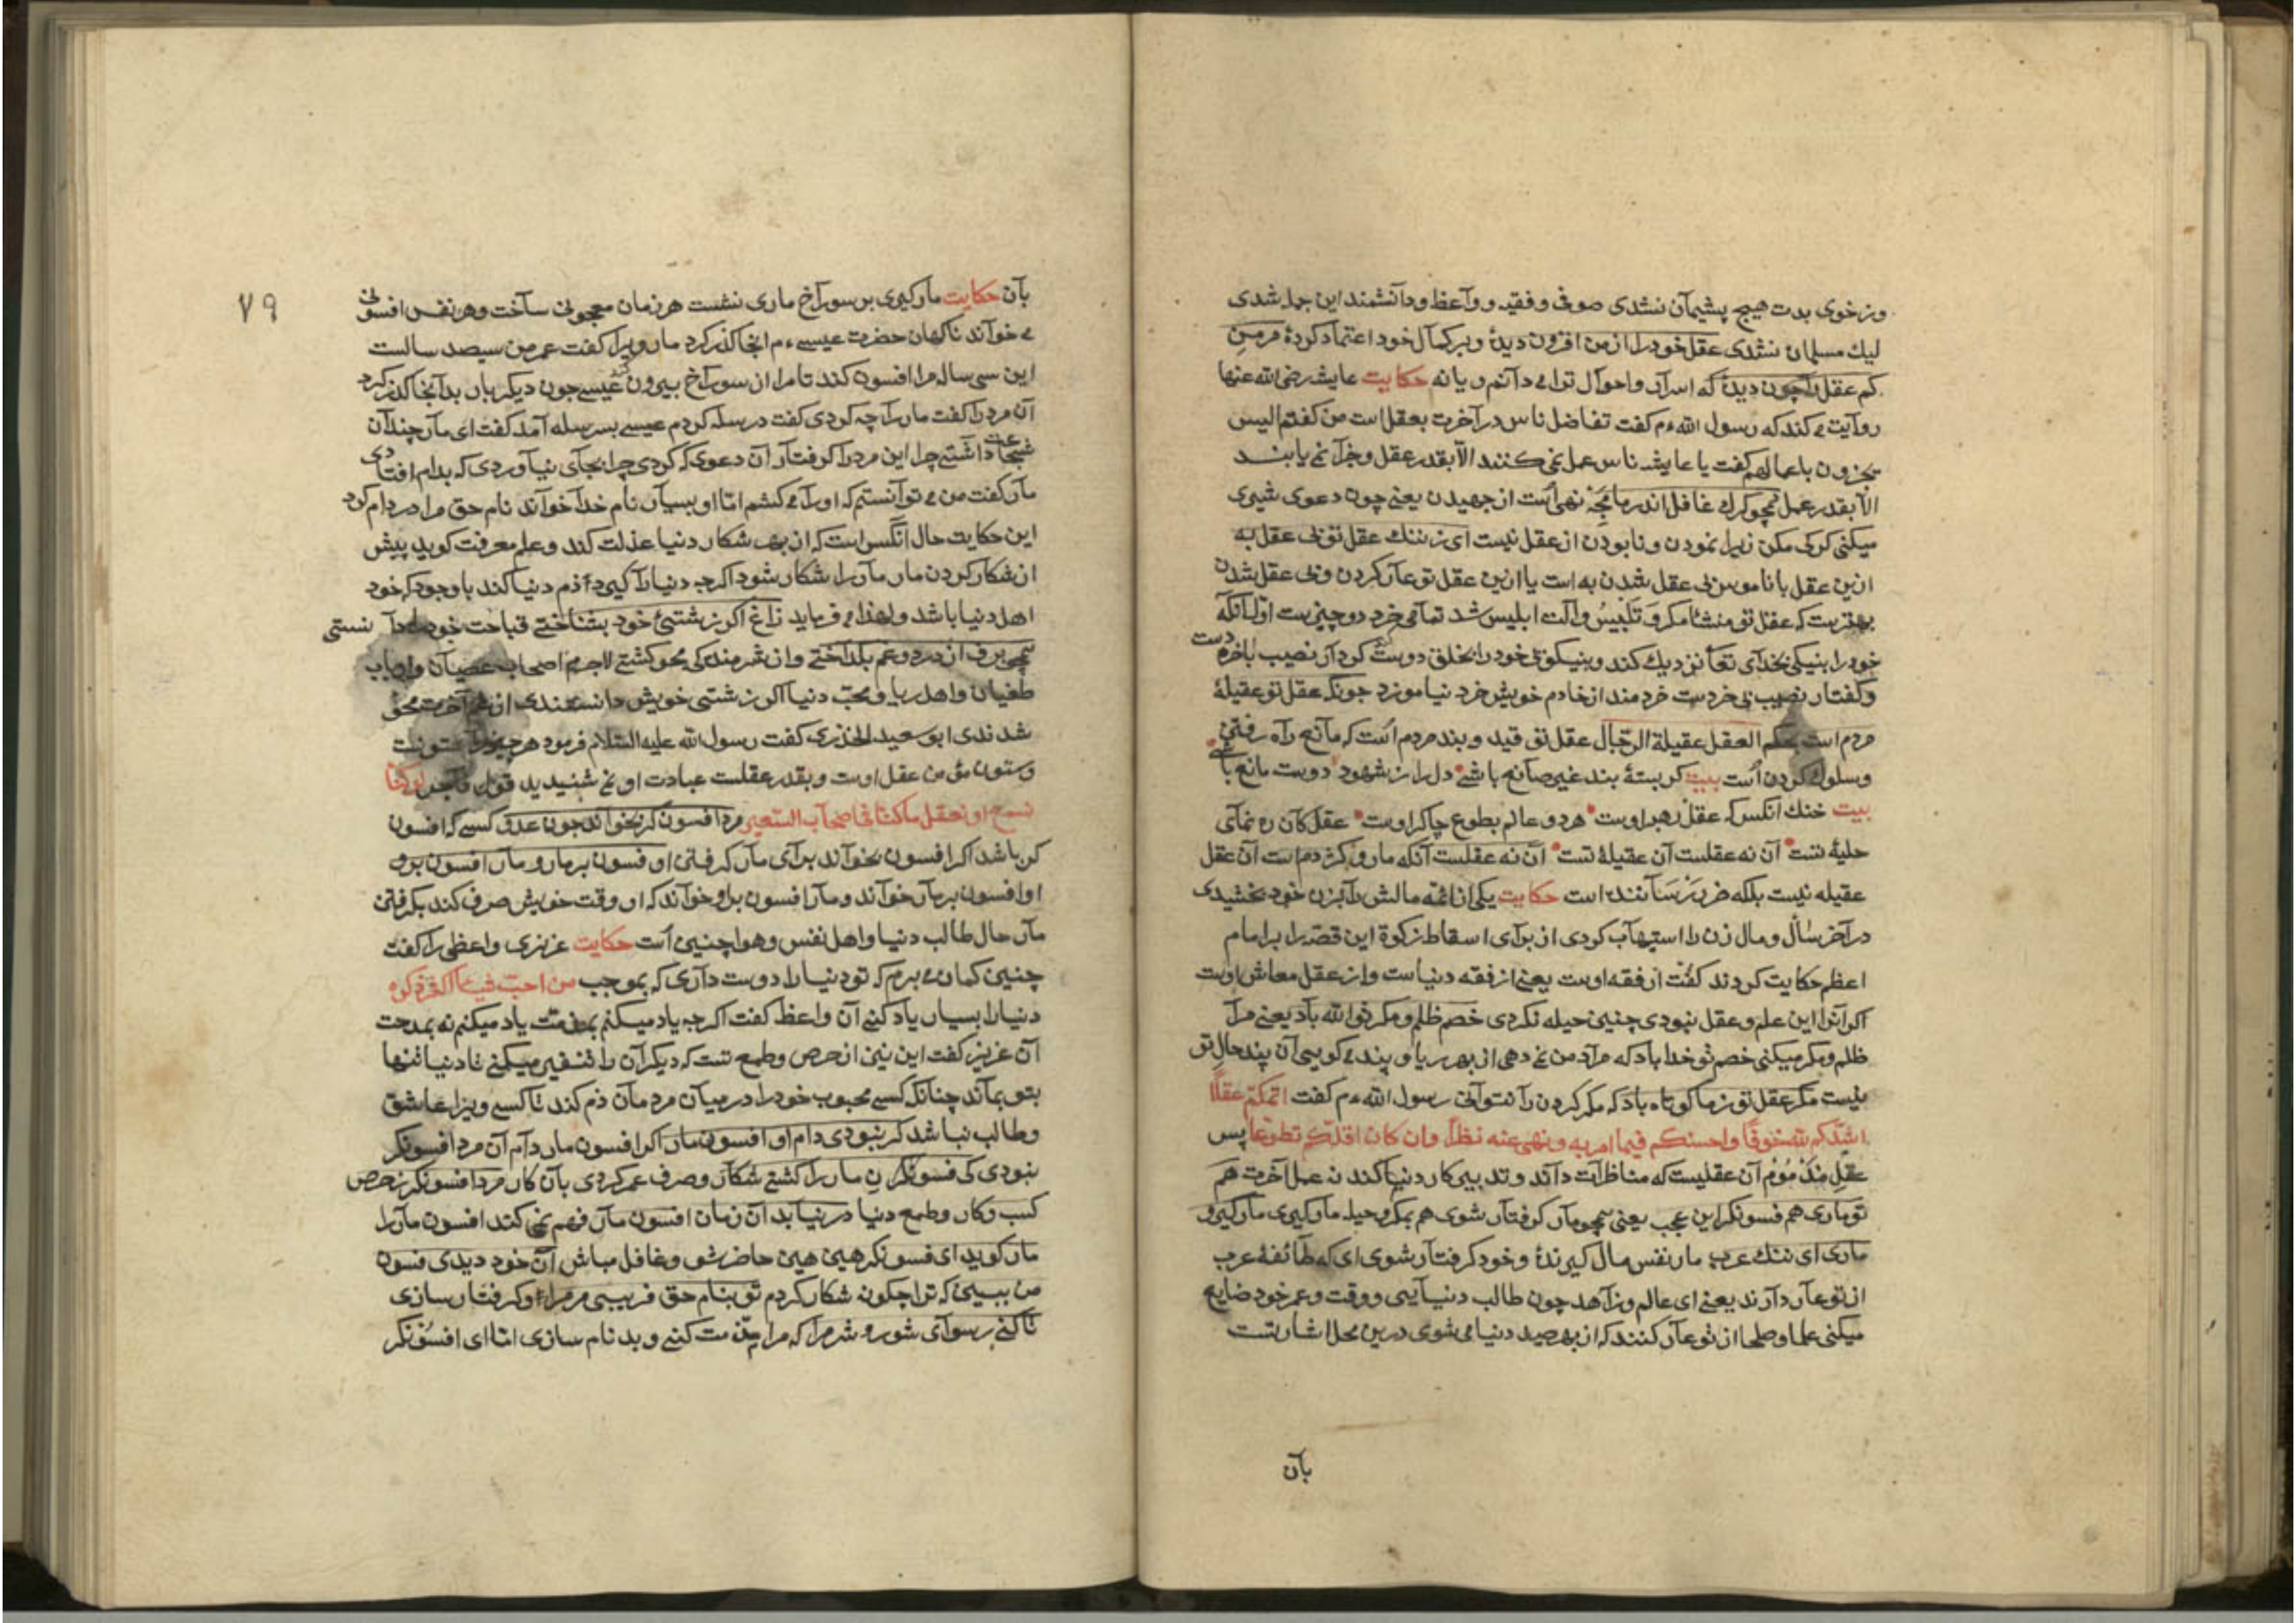 وز خوی بدت هیچ پشیمان نشدی صوفی و فقیه و واعظ و دانشمند این جمله شدی
لیك مسلمان نشدی عقل خود را از من افزون دیدۀ و بر كمال خود اعتماد كردۀ مر من
كم عقل را چون دیدی كه اسرار و احوال ترا می دانم و یا نه حكایت عایشه رضی الله عنها
روایت می كند كه رسول الله ءم كفت تفاضل ناس در آخرت بعقل است من كفتم الیس
یجزون باعمالهم كفت یا عایشه ناس عمل نمی كنند الا بقدر عقل و جزا نمی یابند
الا بقدر عمل همچو كرك غافل اندر ما مجه نهی است از جهیدن یعنی چون دعوی شیری
میكنی كركی مكن زیرا نمودن و نابودن از عقل نیست ای ز ننك عقل تو بی عقل به
ازین عقل با ناموس بی عقل شدن به است یا ازین عقل تو عار كردن و بی عقل شدن
بهترست كه عقل تو منشاء مكر و تلبیس و آلت ابلیس شد تمامی خرد دو چیزست اول آنكه
خود را بنیكی بخدای تعا نزدیك كند و بنیكویی خود را بخلق دوست كرداند نصیب بآخره دست
و كفتار نصیب بی خردست خردمند از خادم خویش خرد نیاموزد چونكه عقل تو عقیلۀ
مردم است بحكم العقل عقیلة الرجال عقل تو قید و بند مردم است كه مانع راه رفتن
و سلوك كردن است بیت كر بستۀ بند غیر صانع باشی دل را ز شهود دوست مانع باشی
بیت خنك انكس كه عقل رهبر اوست هر دو عالم بطوع چاكر اوست عقل كان ره نمای
حلیۀ تست آن نه عقلست آن عقیلۀ تست آن نه عقلست آنكه مار و كژدم است آن عقل
عقیله نیست بلكه ضرر رسانند است حكایت یكی از ائمه مالش را بزن خود بخشیدی
در آخر سال و مال زن را استیهاب كردی از برای اسقاط زكوة این قصه را بر امام
اعظم حكایت كردند كفت از فقه اوست یعنی از فقه دنیاست و از عقل معاش اوست
اكر آنرا این علم و عقل نبودی چنین حیله نكردی خصم ظلم و مكر تو الله باد یعنی مرا
ظلم و مكر میكنی خصم تو خدا باد كه مراد من نمی دهی از بهر ریا و پند می كویی آن پند حال تو
نیست مكر عقل تو ز ما كوتاه باد كه مكر كردن را نتوانی رسول الله ءم كفت اتمكم عقلا
اشدكم لله خوفا و احسنكم فیما امر به و نهی عنه نظرا و ان كان اقلكم تطوعا پس
عقل مذموم آن عقلیست كه مناظرات داند و تدبیر كار دنیا كند نه عمل آخرت هم
تو ماری هم فسونكر این عجب یعنی همچو مار كرفتار شوی هم بمكر و حیله مار كیری مار كیر و
ماری ای ننك عرب مار نفس مال كیرندۀ و خود كرفتار شوی ای كه طائفۀ عرب
از تو عار دارند یعنی ای عالم و زاهد چون طالب دنیایی و وقت و عمر خود ضایع
میكنی علما و صلحا از تو عار كنند كه از بهر صید دنیا می شوی درین محل اشارتست
بآن
٧٩
بآن حكایت مار كیری بر سوراخ ماری نشست هر زمان معجونی ساخت و هر نفس افسونی
می خواند ناكهان حضرت عیسی ءم انجا كذر كرد مار ویرا كفت عمر من سیصد سالست
این سی ساله مرا افسون كند تا مرا از سوراخ بیرون عیسی چون دیكر بار بدانجا كذر كرد
آن مرد را كفت مار را چه كردی كفت در سله كردم عیسی بسر سله آمد كفت ای مار چندان
شجاعت داشتی چرا این مرد را كرفتار آن دعوی كه كردی چرا بجای نیاوردی كه بدام افتادی
مار كفت من می توانستم كه او را می كشم اما او بسیار نام خدا خواند نام حق مرا در دام كرد
این حكایت حال انكس است كه از بهر شكار دنیا عذلت كند و علم معرفت كوید پیش
از شكار كردن مار مار را شكار شود اكرچه دنیا را كیرد اذم دنیا كند با وجود كه خود
اهل دنیا باشد و لهذا می فرماید زاغ اكر زشتئ خود بشناختی قباحت خود را دانستی
همچو برف از درد و غم بكداختی و از شرمندكی محو كشتی لاجرم اصحاب عصیان و ارباب
طغیان و اهل ریا و محب دنیا اكر زشتی خویش دانستندی از غم آخرت محو
شدندی ابو سعید الخذری كفت رسول الله علیه السلام فرمود هر چیز را ستونست
و ستون مؤمن عقل اوست و بقدر عقلست عبادت او نمی شنیدید قول فاجر لو كنا
نسمع او نعقل ما كنا فی اصحاب السعیر مرد افسونكر بخواند چون عدو كسی كه افسون
كر باشد اكر افسون بخواند برای مار كرفتن او فسون بر مار و مار افسون برو
او افسون بر مار خواند و مار افسون براو خواند كه او وقت خویش صرف كند بكرفتن
مار حال طالب دنیا و اهل نفس و هوا چنین است حكایت عزیزی واعظی را كفت
چنین كمان می برم كه تو دنیا را دوست داری كه بموجب من احب شیئا اكثر ذكره
دنیا را بسیار یاد كنی آن واعظ كفت اكرچه یاد میكنم بمذمت یاد میكنم نه بمدحت
آن عزیز كفت این نیز از حرص و طمع تست كه دیكران را تنفیر میكنی تا دنیا تنها
بتو بماند چنانكه كسی محبوب خود را در میان مردمان ذم كند تا كسی ویرا عاشق
و طالب نباشد كر نبودی دام او افسون مار اكر افسون مار دام آن مرد افسونكر
نبودی كی فسونكر ان مار را كشتی شكار و صرف عمر كردی بآن كار مرد افسونكر ز حرص
كسب و كار و طمع دنیا در نیابد آن زمان افسون مار فهم نمی كند افسون مار را
مار كوید ای فسونكر هین هین حاضر شو و غافل مباش آن خود دیدی فسون
من ببین كه ترا چكونه شكار كردم تو بنام حق فریبی مر مرا و كرفتار سازی
تا كنی رسوای شور و شر مرا كه مرا مذمت كنی و بدنام سازی اما ای افسونكر